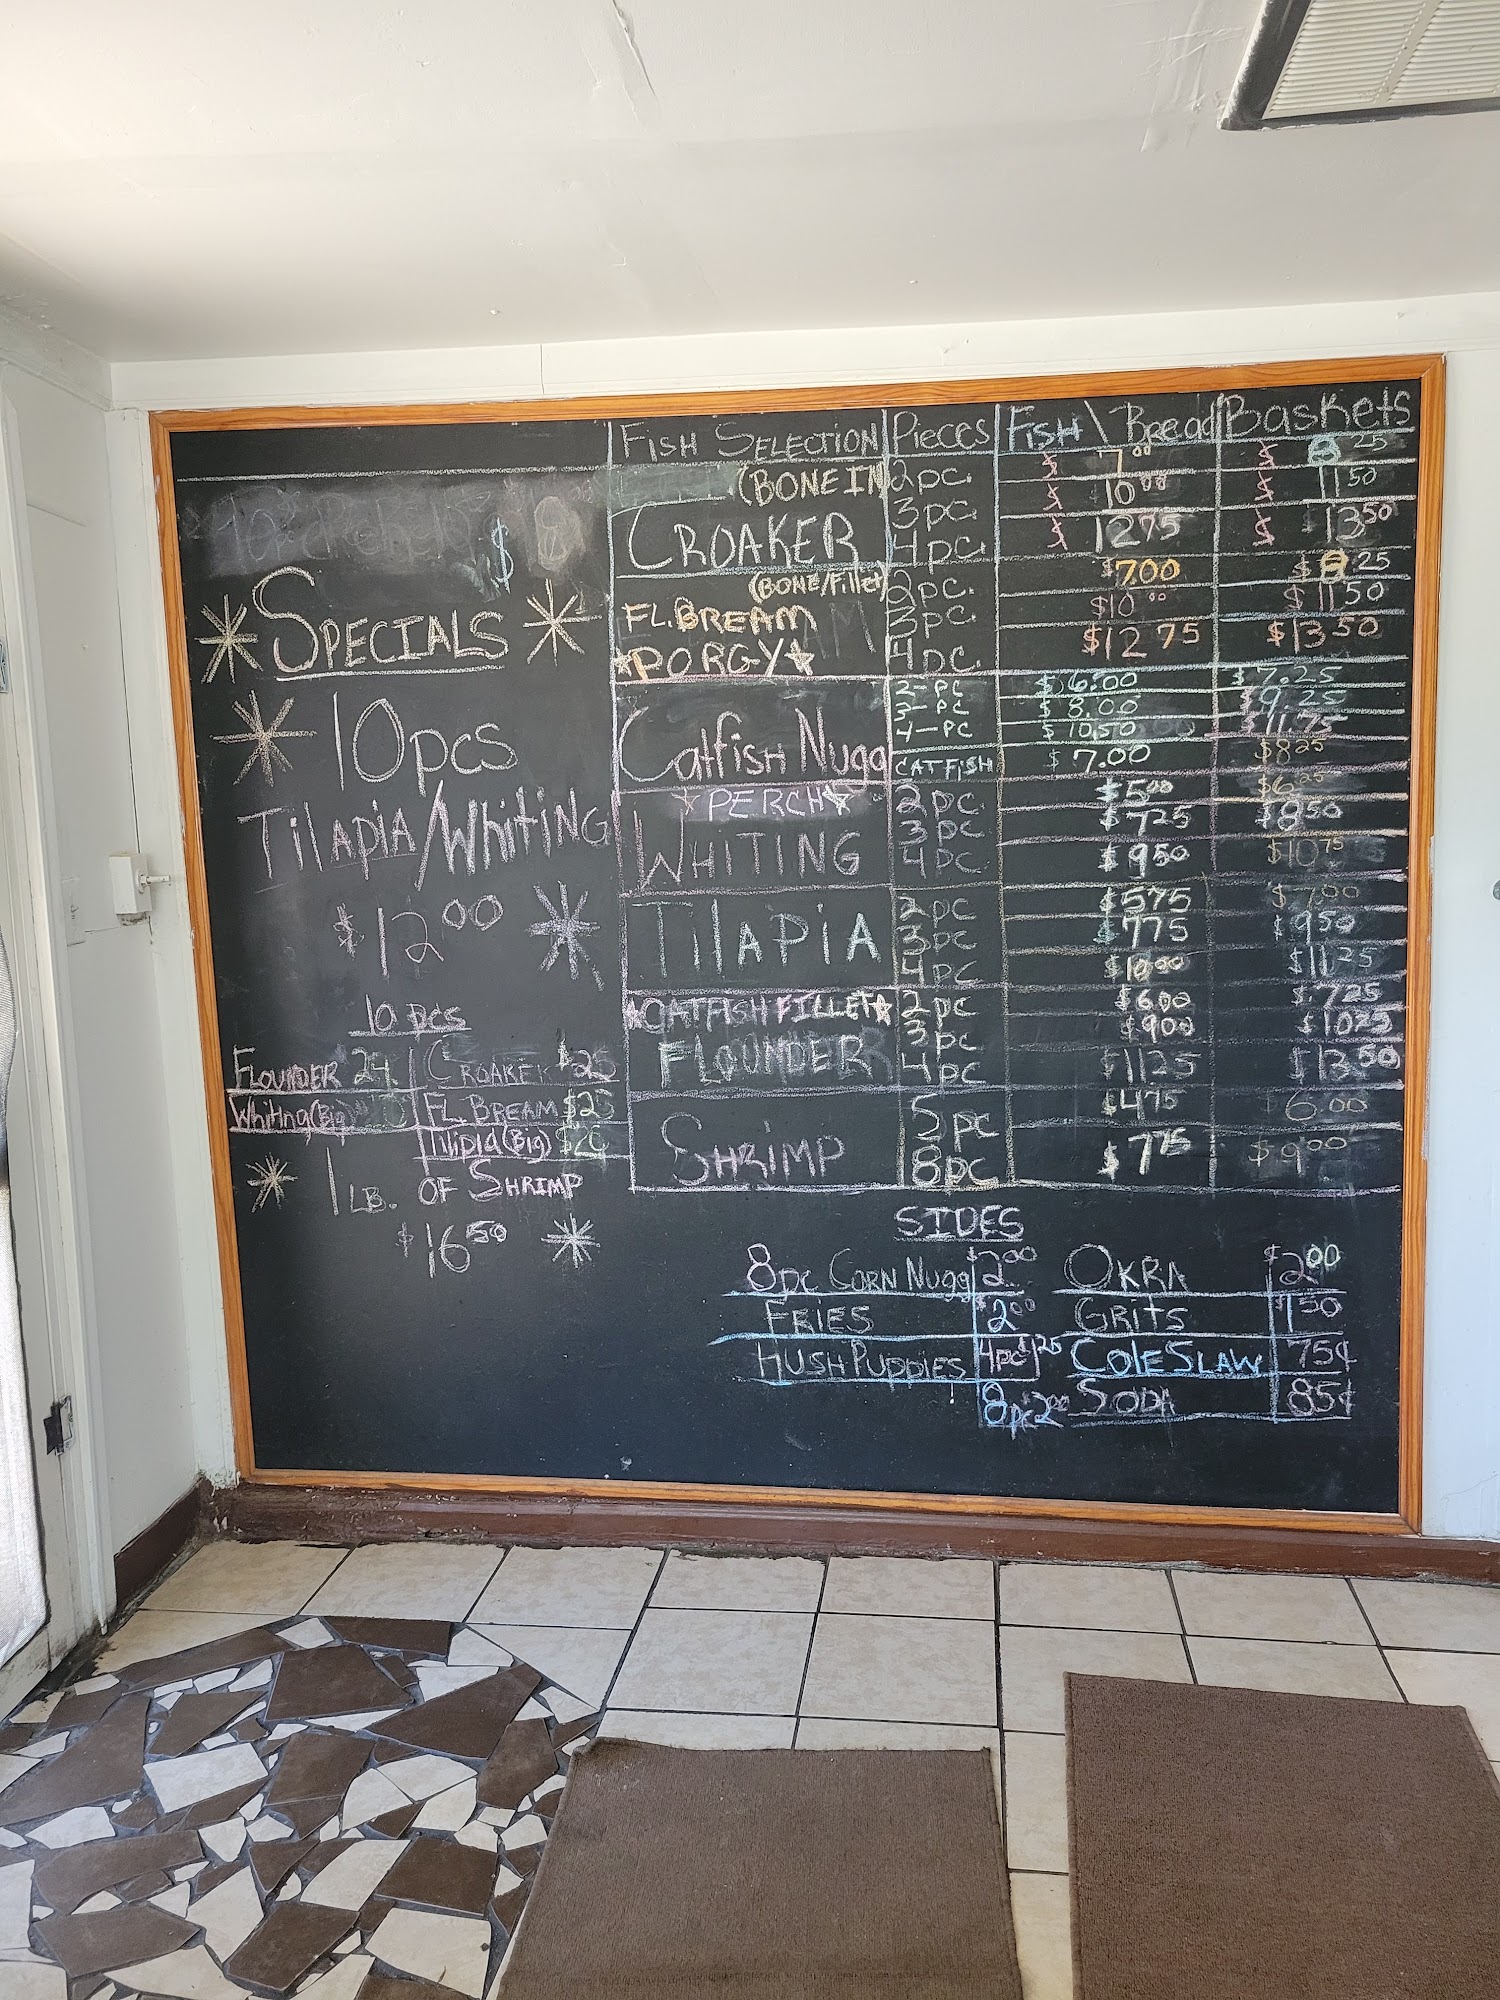 $
* SPECIALS *
* 10pcs
TilAPIA/WhitiNG
$12.00 *
10 pcs
FLOUNDER 24 CROAKER $25
Whiting(Big) FL. BREAM $25
Tilipia(Big) $20
* 1 LB. OF SHRIMP
$16.50 *
FISH SELECTION Pieces FISH \ Bread Baskets
(BONE IN) 2pc. $ 7.00 $ 8.25
CROAKER 3pc. $ 10.00 $ 11.50
4pc. $ 12.75 $ 13.50
(BONE/Fillet) 2pc. $7.00 $8.25
FL. BREAM 3pc. $10.00 $11.50
PORGY 4pc. $12.75 $13.50
2-pc $6.00 $7.25
3-pc $8.00 $9.25
Catfish Nugg 4-pc $10.50 $11.75
CATFISH $7.00 $8.25
PERCH 2pc. $5.00 $6.25
WHITING 3pc $7.25 $8.50
4pc $9.50 $10.75
TilAPiA 2pc $5.75 $7.00
3pc $7.75 $9.50
4pc $10.00 $11.25
CATFISH FILLET 2pc $6.00 $7.25
FLOUNDER 3pc $9.00 $10.25
4pc $11.25 $13.50
SHRIMP 5pc $4.75 6.00
8pc $7.75 $9.00
SIDES
8pc CORN Nugg $2.00 OKRA $2.00
FRIES $2.00 GRitS $1.50
HUSH PUPPIES 4pc $1.25 COLE SLAW 75¢
8pc $2.00 SODA 85¢